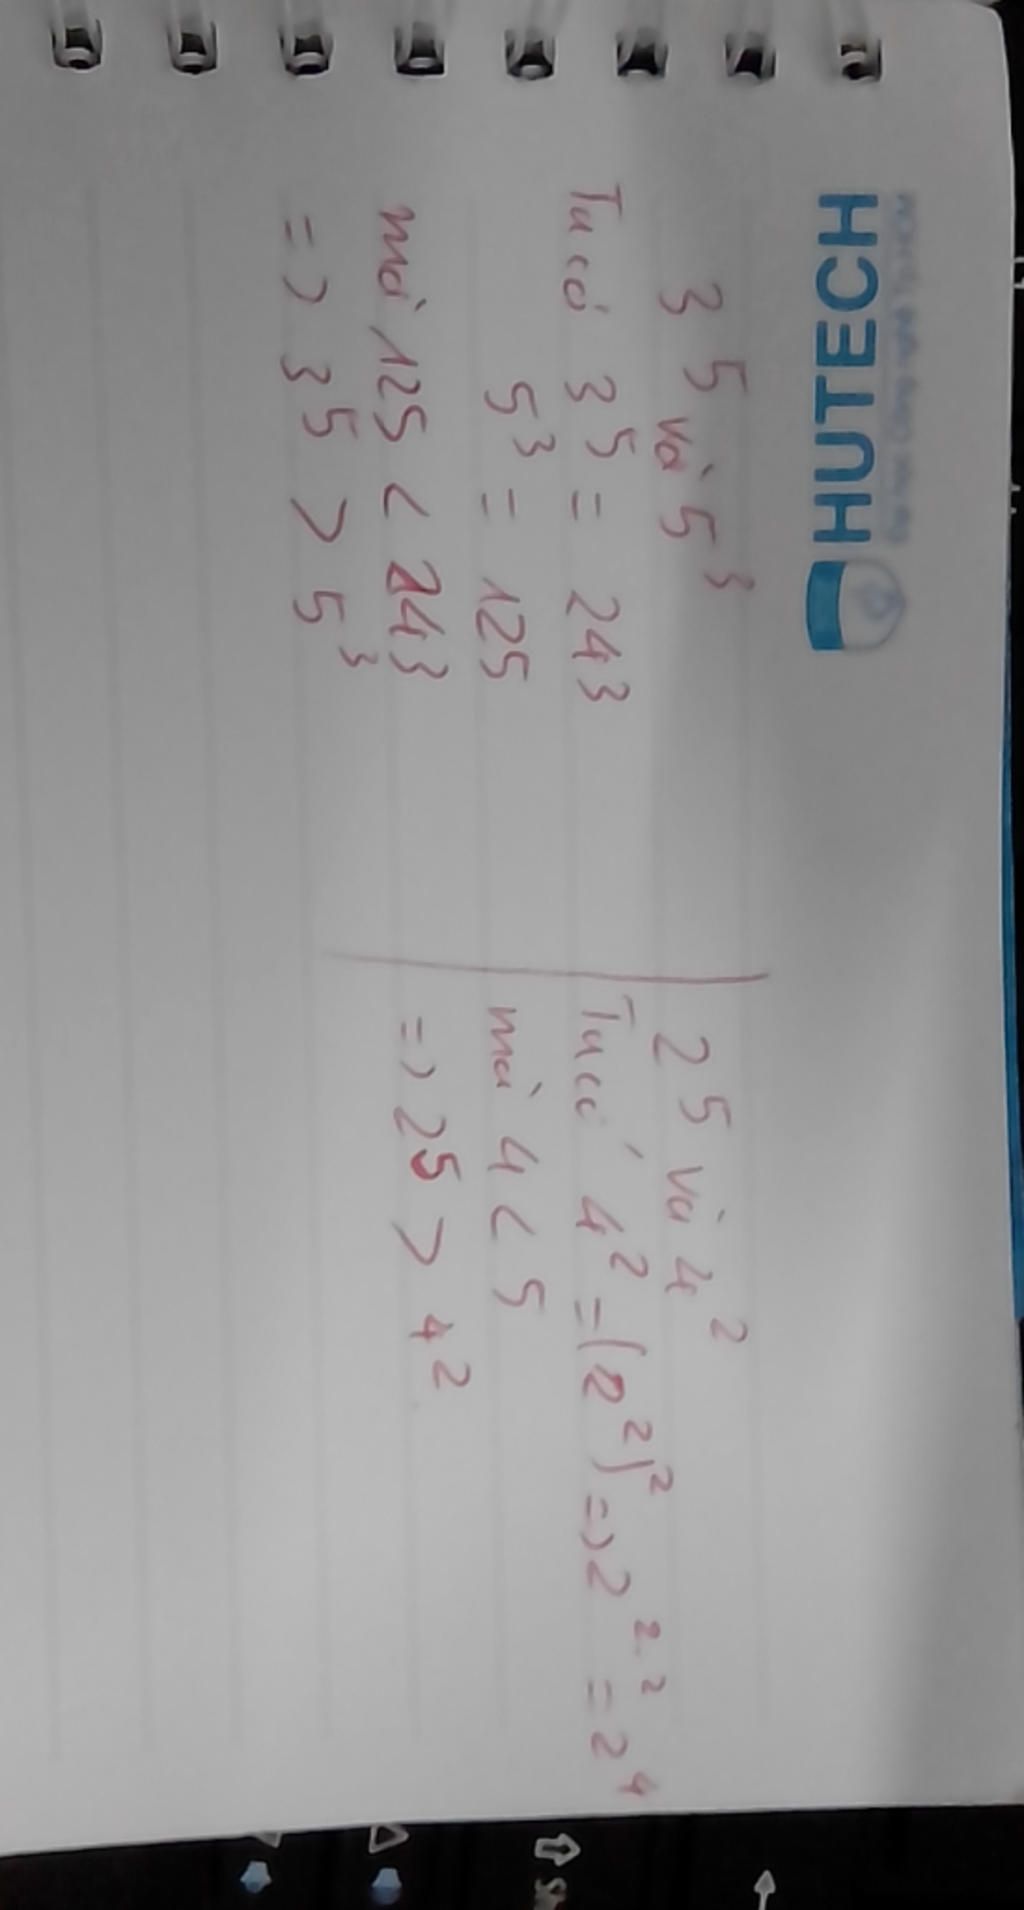 HUTECH
3⁵ và 5³
Ta có 3⁵ = 243
5³ = 125
mà 125 < 243
=> 3⁵ > 5³
2⁵ và 4²
Ta có 4² = (2²)² => 2²·² = 2⁴
mà 4 < 5
=> 2⁵ > 4²